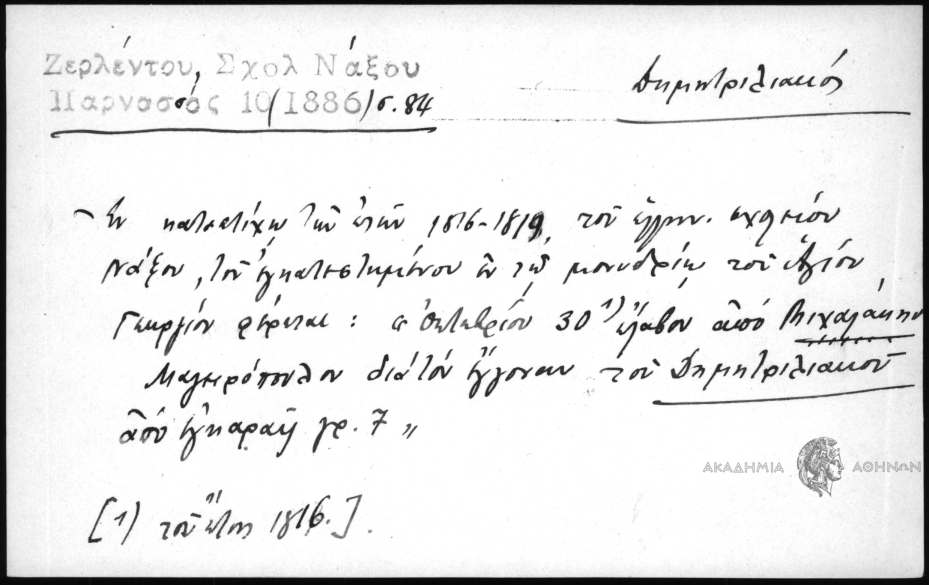 Ζερλέντου, Σχολ Νάξου
Παρνασσός 10 (1886) σ. 84
Δημητριλιακός
Ἐν καταστίχῳ τῶν ἐτῶν 1816-1819, τοῦ ἑλλην. σχολείου
Νάξου, τοῦ ἐγκατεστημένου ἐν τῷ μονυδρίῳ τοῦ Ἁγίου
Γεωργίου φέρεται: « Ὀκτωβρίου 30 1) ἔλαβον ἀπό Μιχαλάκην
Μαγειρόπουλον διά τόν ἔγγοναν τοῦ Δημητριλιακοῦ
ἀπό γρ. 7 »
ΑΚΑΔΗΜΙΑ ΑΘΗΝΩΝ
[1) τοῦ ἔτους 1816.]